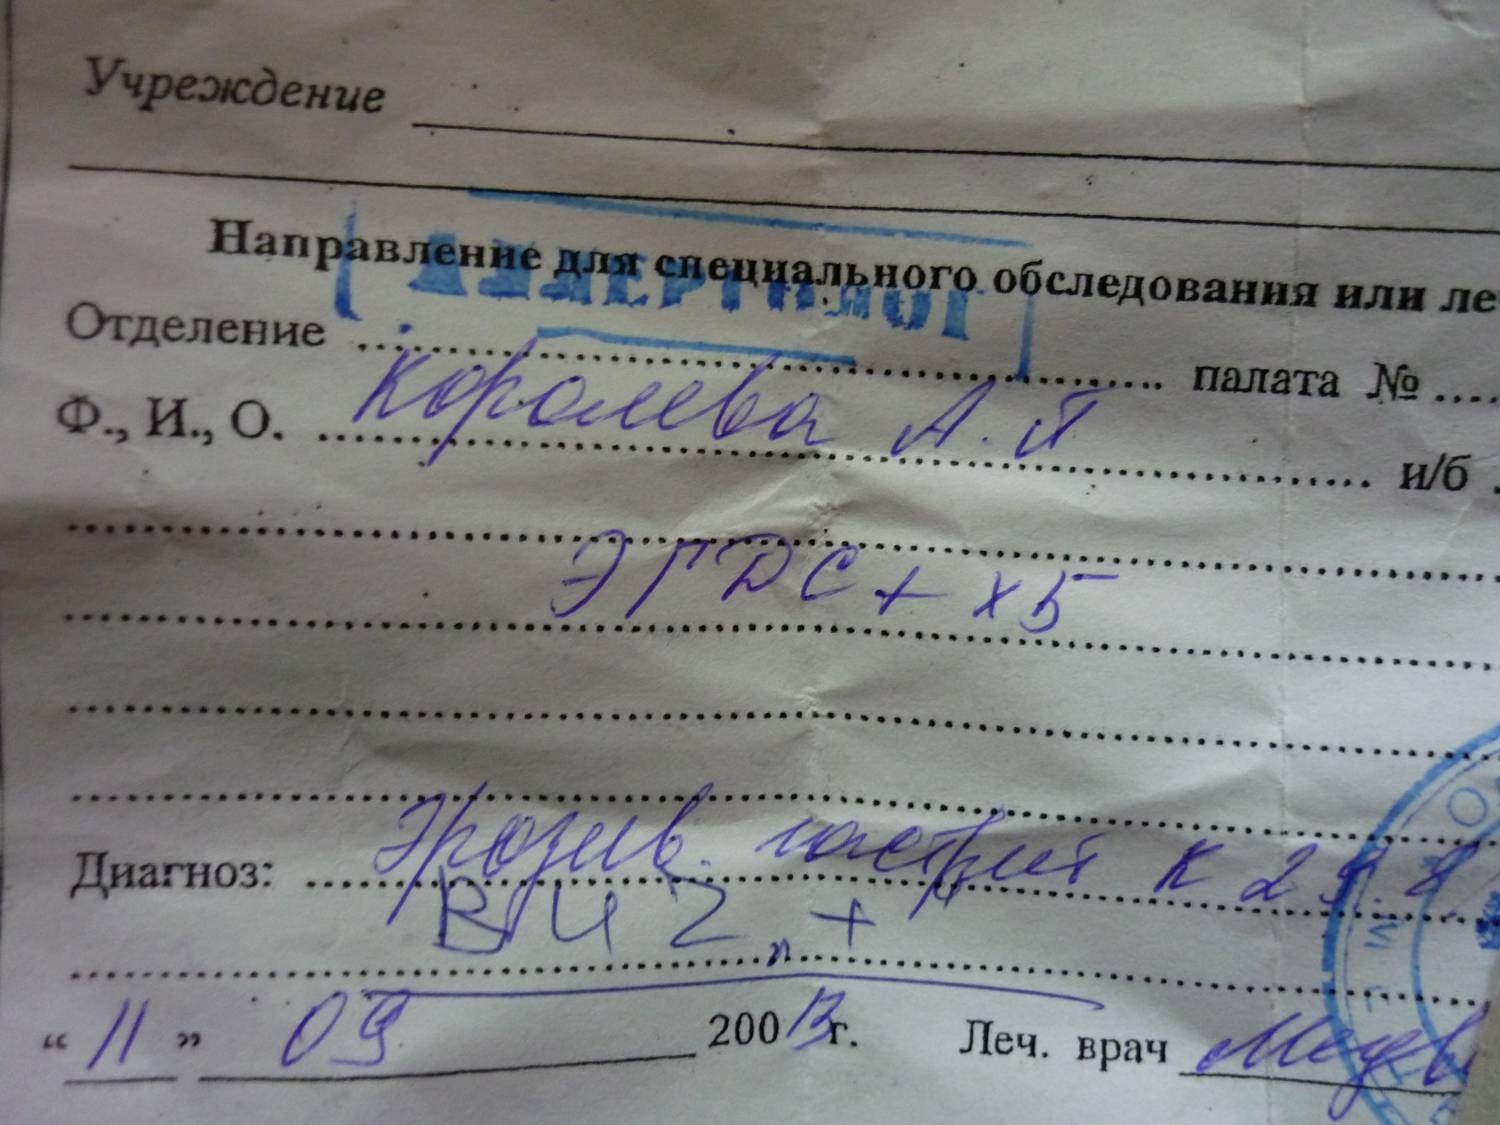 Учреждение
Направление для специального обследования или ле
АЛЛЕРГОЛОГ
Отделение палата №
Ф., И., О. Королева А. П и/б
ЭГДС + хБ
Диагноз: Эрозив. гастрит К 29.8
ВИ2 "+
"11" 09 20013г. Леч. врач Медв